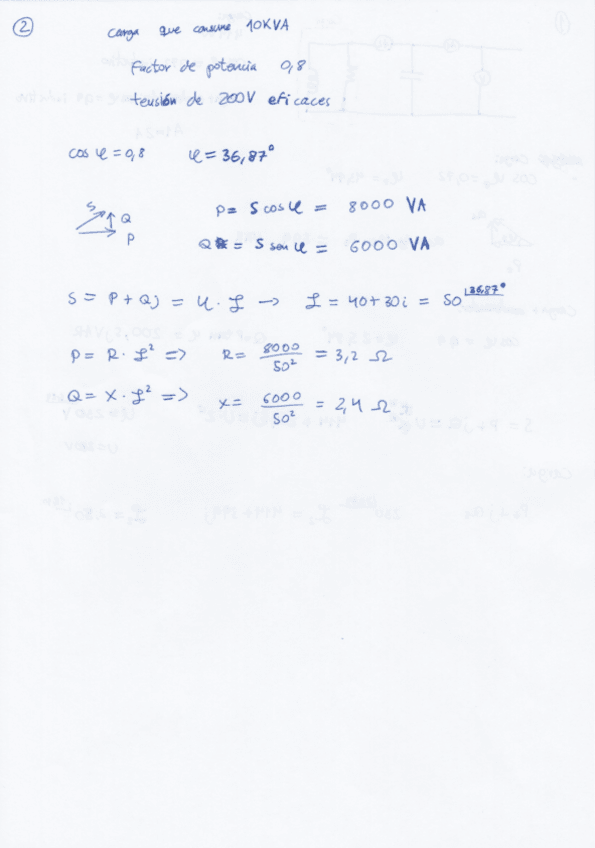 2
Carga que consume 10KVA
Factor de potencia 0,8
tensión de 200V eficaces.
cos φ = 0,8 φ = 36,87°
S Q P
P = S cos φ = 8000 VA
Q = S sen φ = 6000 VA
S = P + Qj = U · I → I = 40 + 30i = 50 |36,87°
P = R · I² => R = 8000 / 50² = 3,2 Ω
Q = X · I² => X = 6000 / 50² = 2,4 Ω